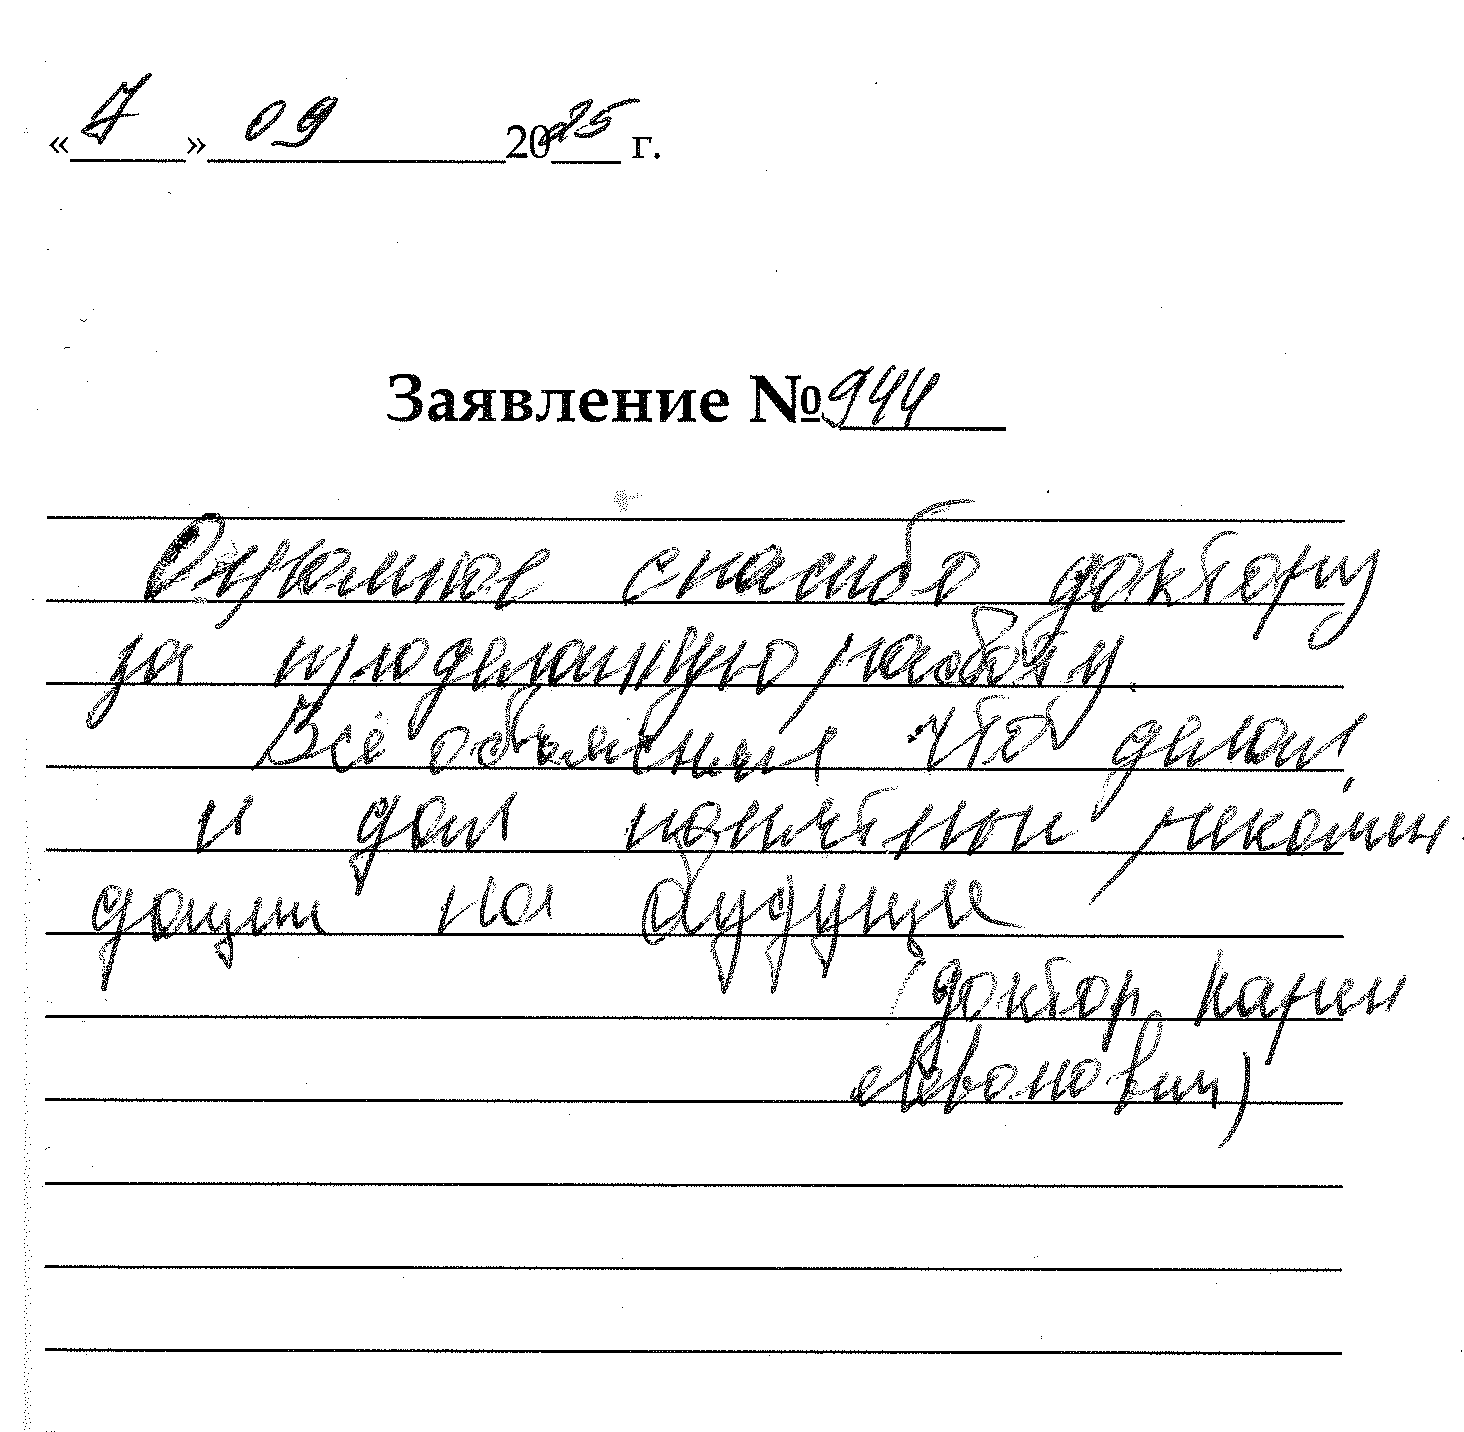 «7» 09 2025 г.
Заявление № 944
Огромное спасибо доктору
за проделанную работу.
Всё объяснил что делал,
и дал понятные рекомен
дации на будущее
(доктор Карен
Левонович)